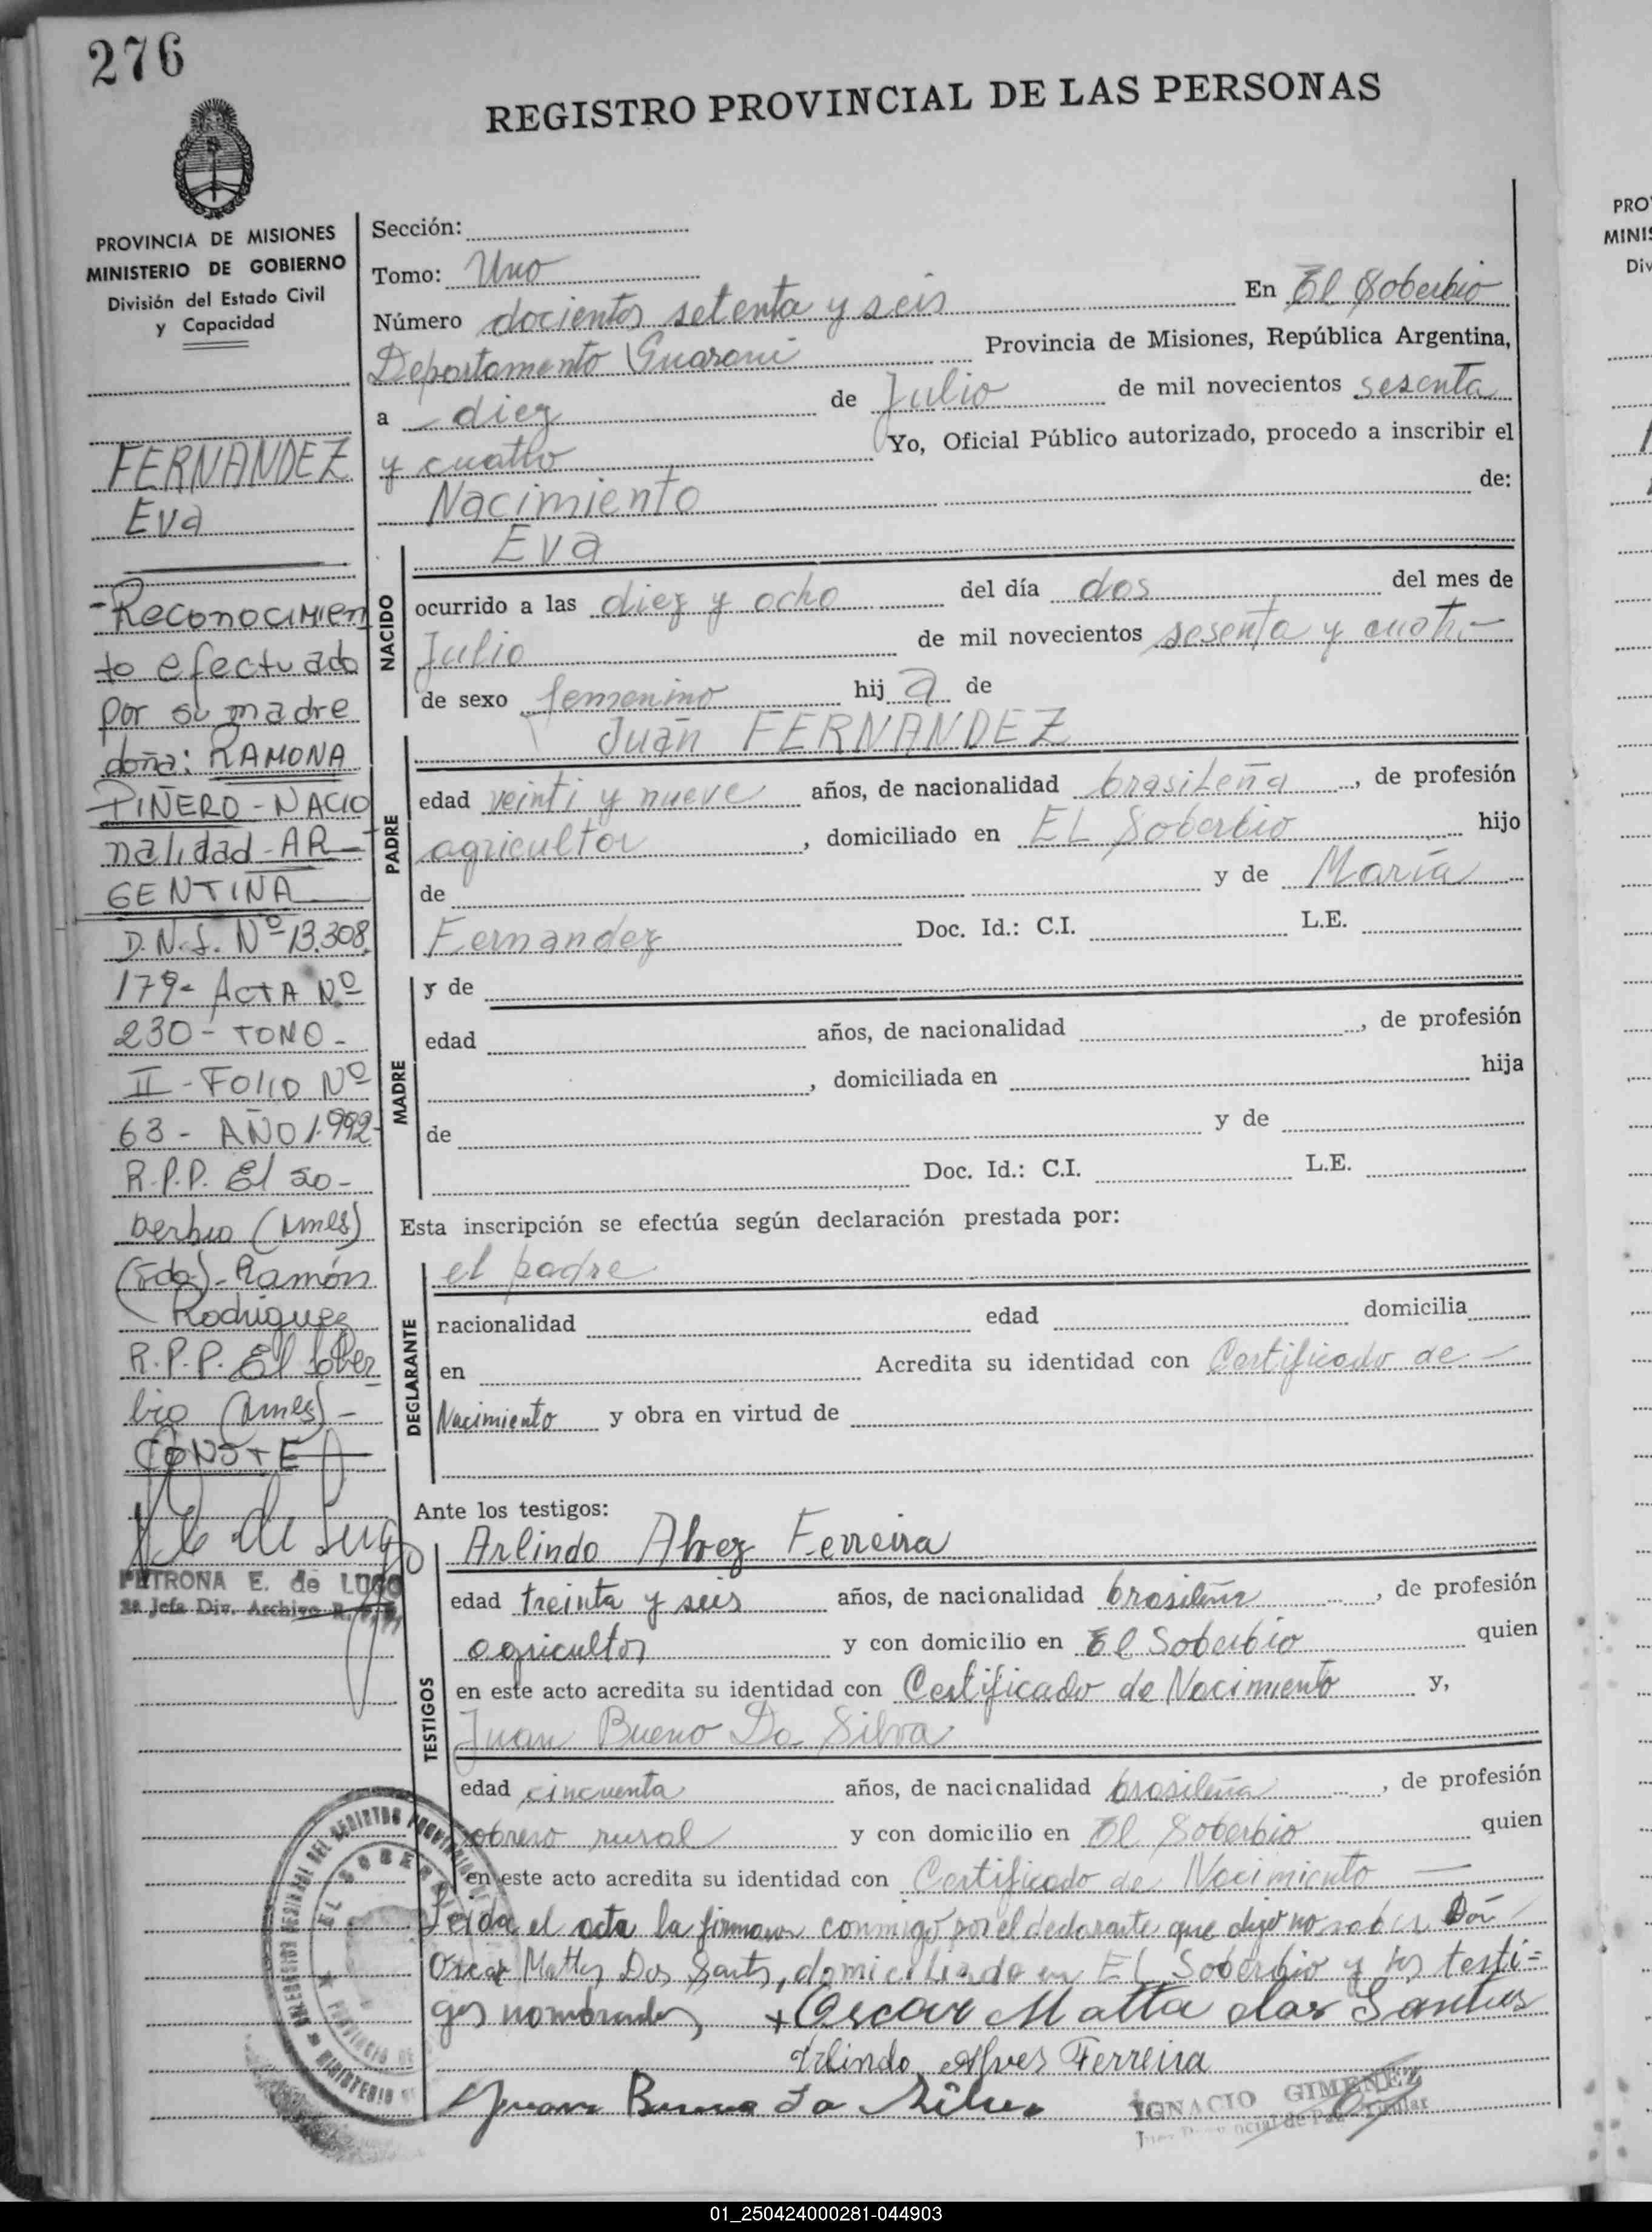 276
REGISTRO PROVINCIAL DE LAS PERSONAS
PROVINCIA DE MISIONES
MINISTERIO DE GOBIERNO
División del Estado Civil
y Capacidad
FERNANDEZ
Eva
-Reconocimien
to efectuado
por su madre
doña: RAMONA
PIÑERO - NACIO
nalidad - AR-
GENTINA
D.N.I. Nº 13.308.
179- ACTA Nº
230 - TOMO -
II - Folio Nº
63 - AÑO 1.992-
R.P.P. El So-
berbio (Mnes)
(Fdo) - Ramón
Rodriguez
R.P.P. El Sober
bio (Mnes) -
CONSTE
PETRONA E. de LUGO
2ª Jefa Div. Archivo R.P.P.
Sección:
Tomo: Uno
Número docientos setenta y seis En El Soberbio
Departamento Guarani Provincia de Misiones, República Argentina,
a diez de Julio de mil novecientos sesenta
y cuatro Yo, Oficial Público autorizado, procedo a inscribir el
Nacimiento de:
Eva
NACIDO
ocurrido a las diez y ocho del día dos del mes de
Julio de mil novecientos sesenta y cuatro-
de sexo femenino hij a de
Juan FERNANDEZ
PADRE
edad veinti y nueve años, de nacionalidad brasileña, de profesión
agricultor, domiciliado en EL Soberbio hijo
de y de María
Fernandez Doc. Id.: C.I. L.E.
MADRE
y de
edad años, de nacionalidad , de profesión
, domiciliada en hija
de y de
Doc. Id.: C.I. L.E.
Esta inscripción se efectúa según declaración prestada por:
el padre
DECLARANTE
nacionalidad edad domicilia
en Acredita su identidad con Certificado de -
Nacimiento y obra en virtud de
Ante los testigos:
Arlindo Alvez Ferreira
TESTIGOS
edad treinta y seis años, de nacionalidad brasileña, de profesión
agricultor y con domicilio en El Soberbio quien
en este acto acredita su identidad con Certificado de Nacimiento y,
Juan Bueno Da Silva
edad cincuenta años, de nacionalidad brasileña, de profesión
obrero rural y con domicilio en El Soberbio quien
en este acto acredita su identidad con Certificado de Nacimiento
Leida el acta la firman conmigo por el declarante que dijo no saber Don
Oscar Matta Dos Santos, domiciliado en EL Soberbio y los testi=
gos nombrados, + Oscar Matta dos Santos
Arlindo Alves Ferreira
Juan Bueno Da Silva
IGNACIO GIMENEZ
EL SOBERBIO
PRO
MINIS
Div
01_250424000281-044903